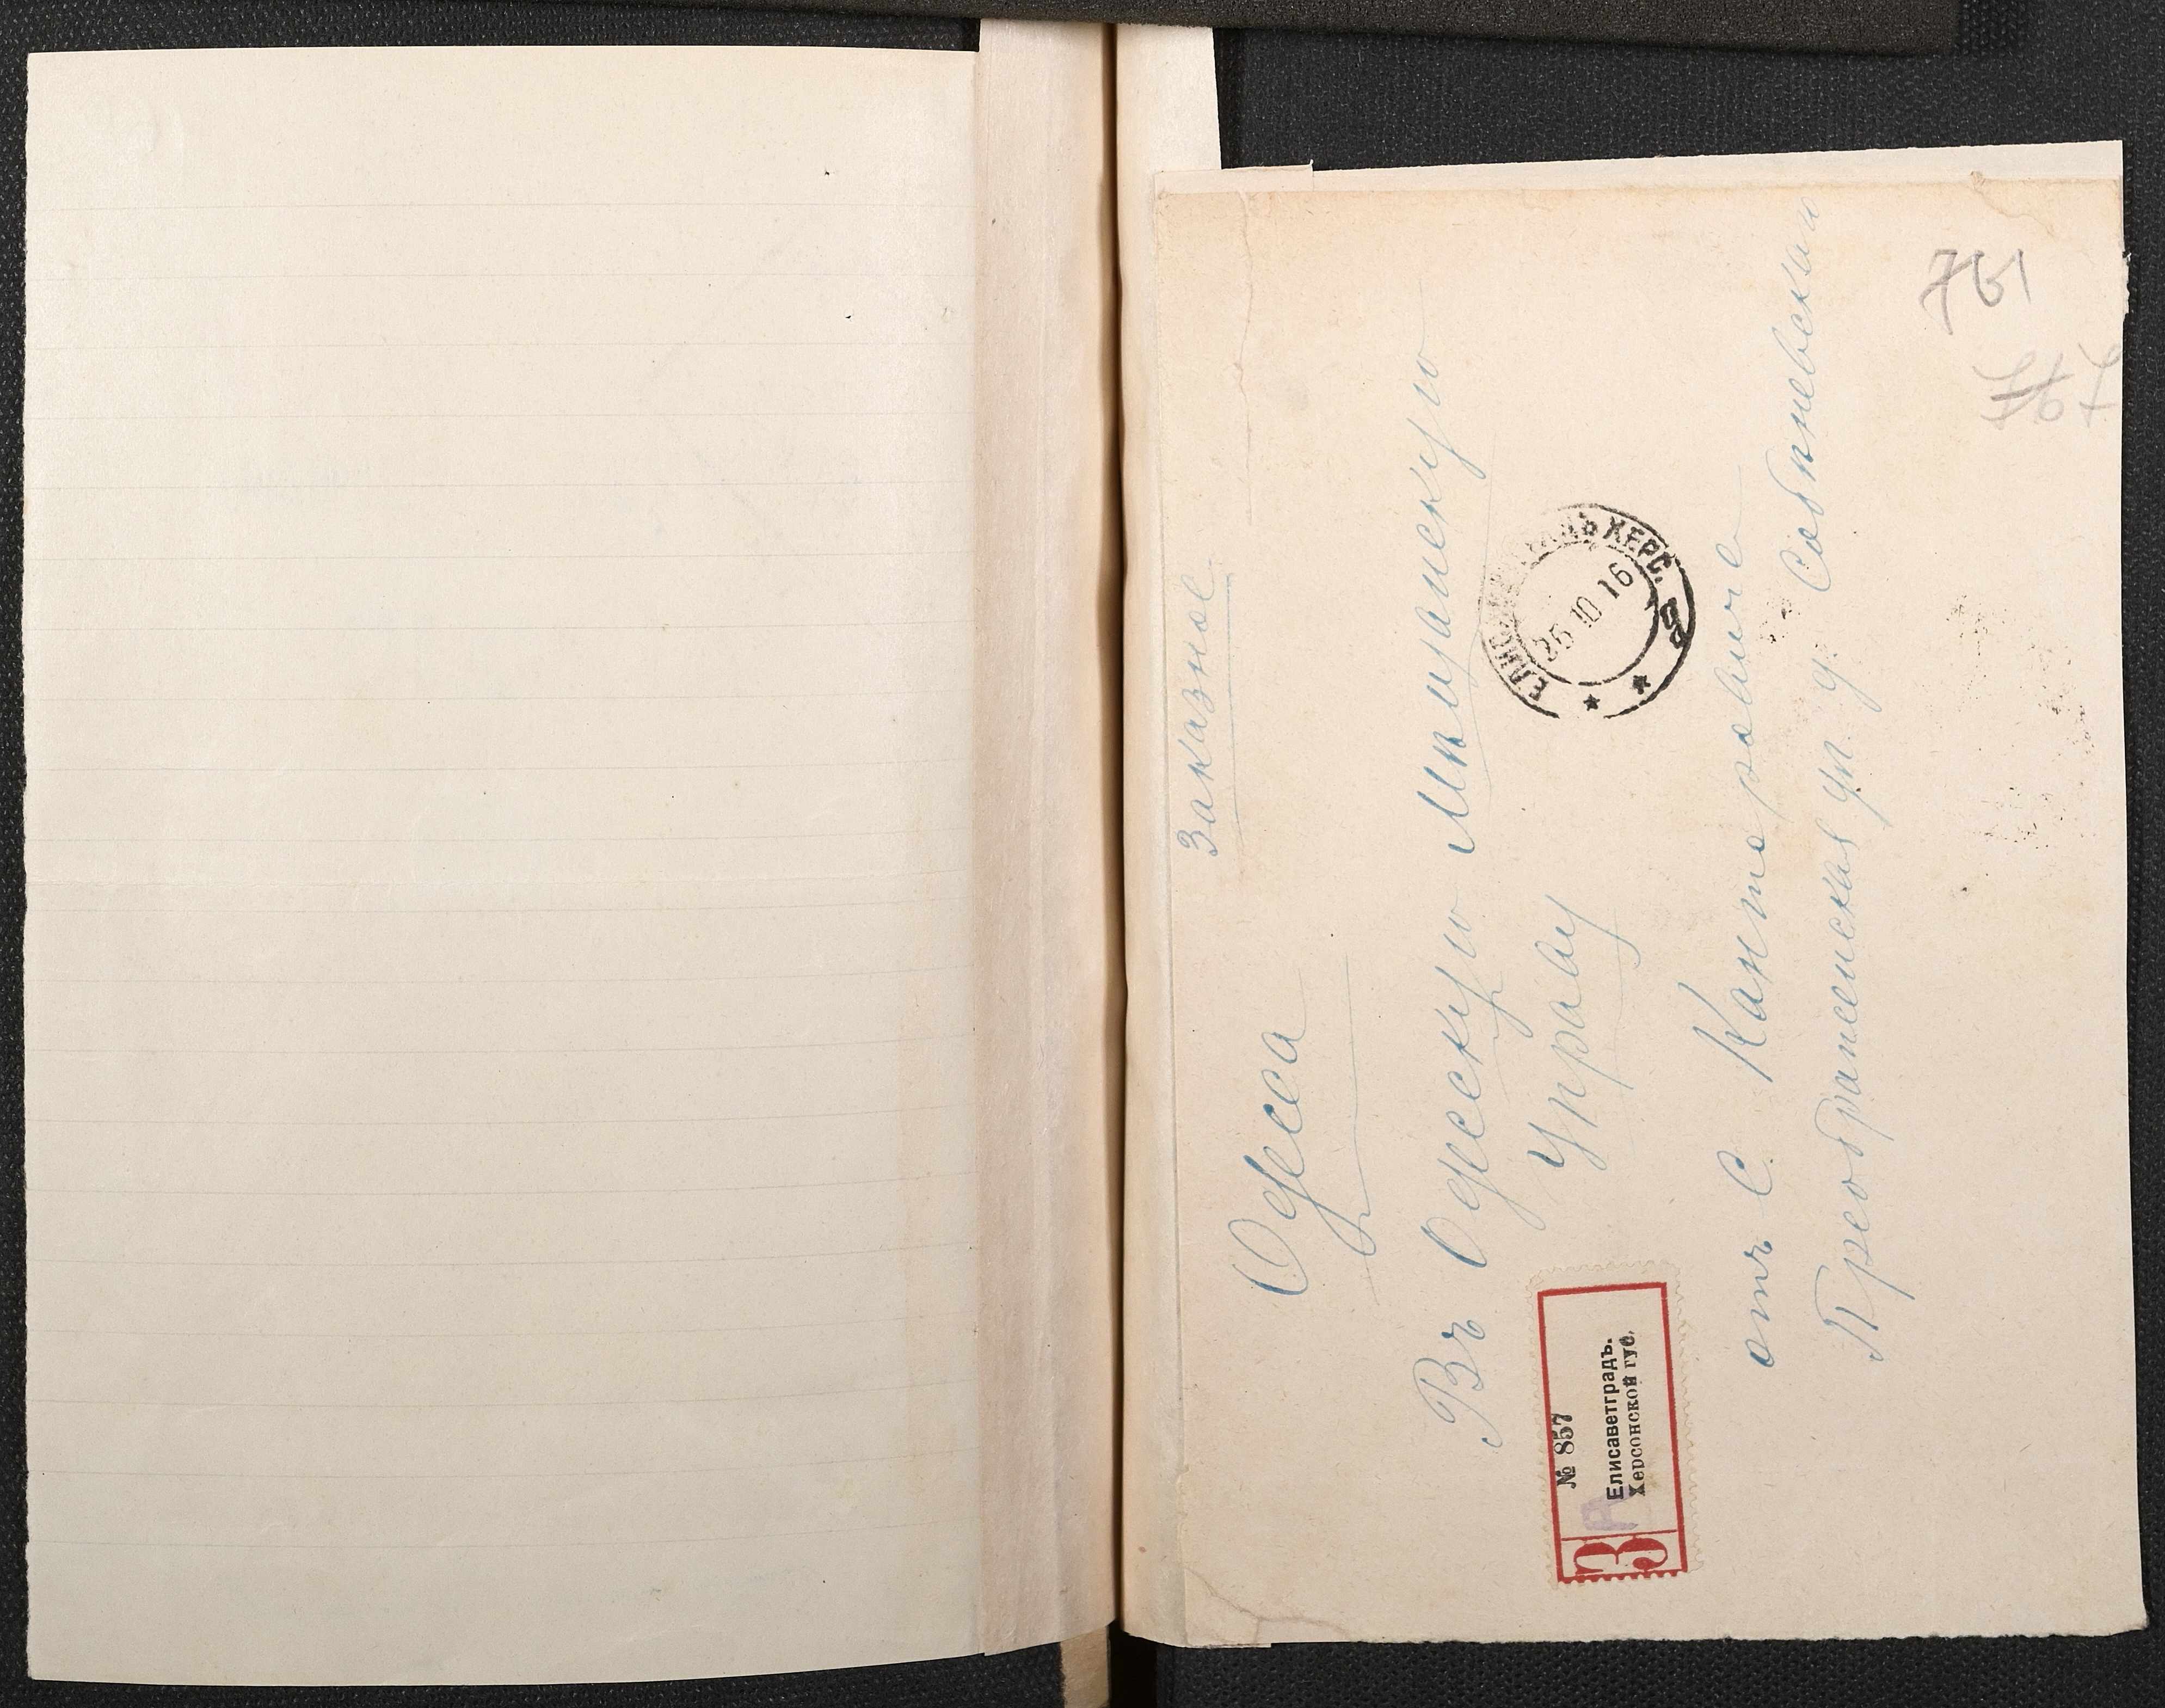 Заказное
Одесса
Въ Одесскую Мѣщанскую
Управу
ЕЛИСАВЕТГРАДЪ ХЕРС. Г.
25 10 16
З
№ 857
Елисаветградъ.
Херсонской губ.
отъ С. Канторовичъ
Преображенская ул. у
761
767